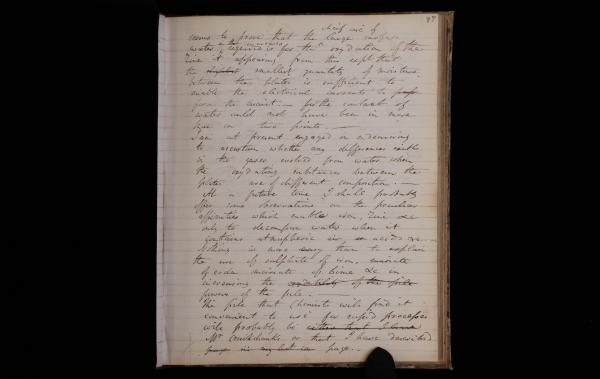 97
chief use of
seems to prove that the large surface
water, required is for the oxydation of the
zinc it appearing from this expt that
the smallest quantity of moisture
between the plates is sufficient to
enable the electrical to pass
from the circuit — for the contact of
water could not have been in more
than on two points. —
I am at present engaged in endeavouring
to ascertain whether any differences exists
in the gases evolved from water when
the oxydating substances between the
plates are of different composition. —
At a future time I shall probably
offer some observations on the peculiar
affinities which enable iron, Zinc &c
only to decompose water when it
contains atmospheric air, or acids &c —
Nothing is more easy than to explain
the use of sulphate of iron, muriate
of soda muriate of lime &c in
increasing the of the pile
powers of the pile. —
The pile that Chemists will find it
convenient to use for rapid processes
will probably be
Mr Cruikshanks or that I have described
page in my last page. —